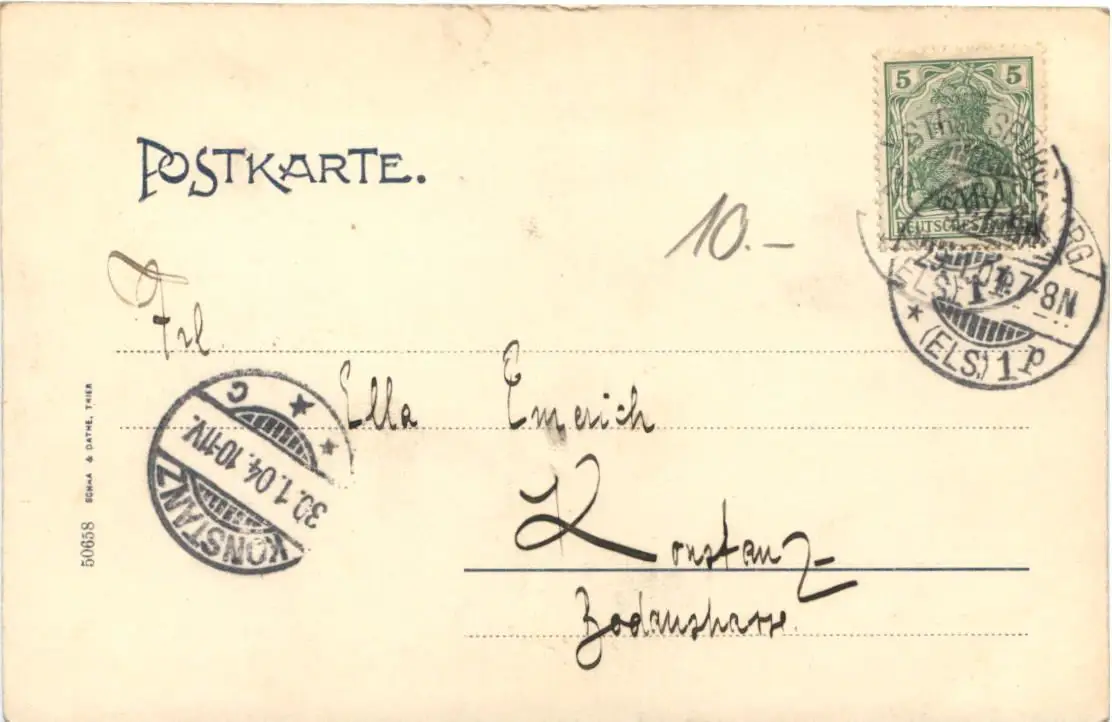 POSTKARTE.
5 5
10.-
Frl.
Ella Emerich
Konstanz
Bodanstrasse.
KONSTANZ
30.1.04.10-11V.
* * C
7-8N
* (ELS.) 1 p
50658 SCHAA & DATHE, TRIER